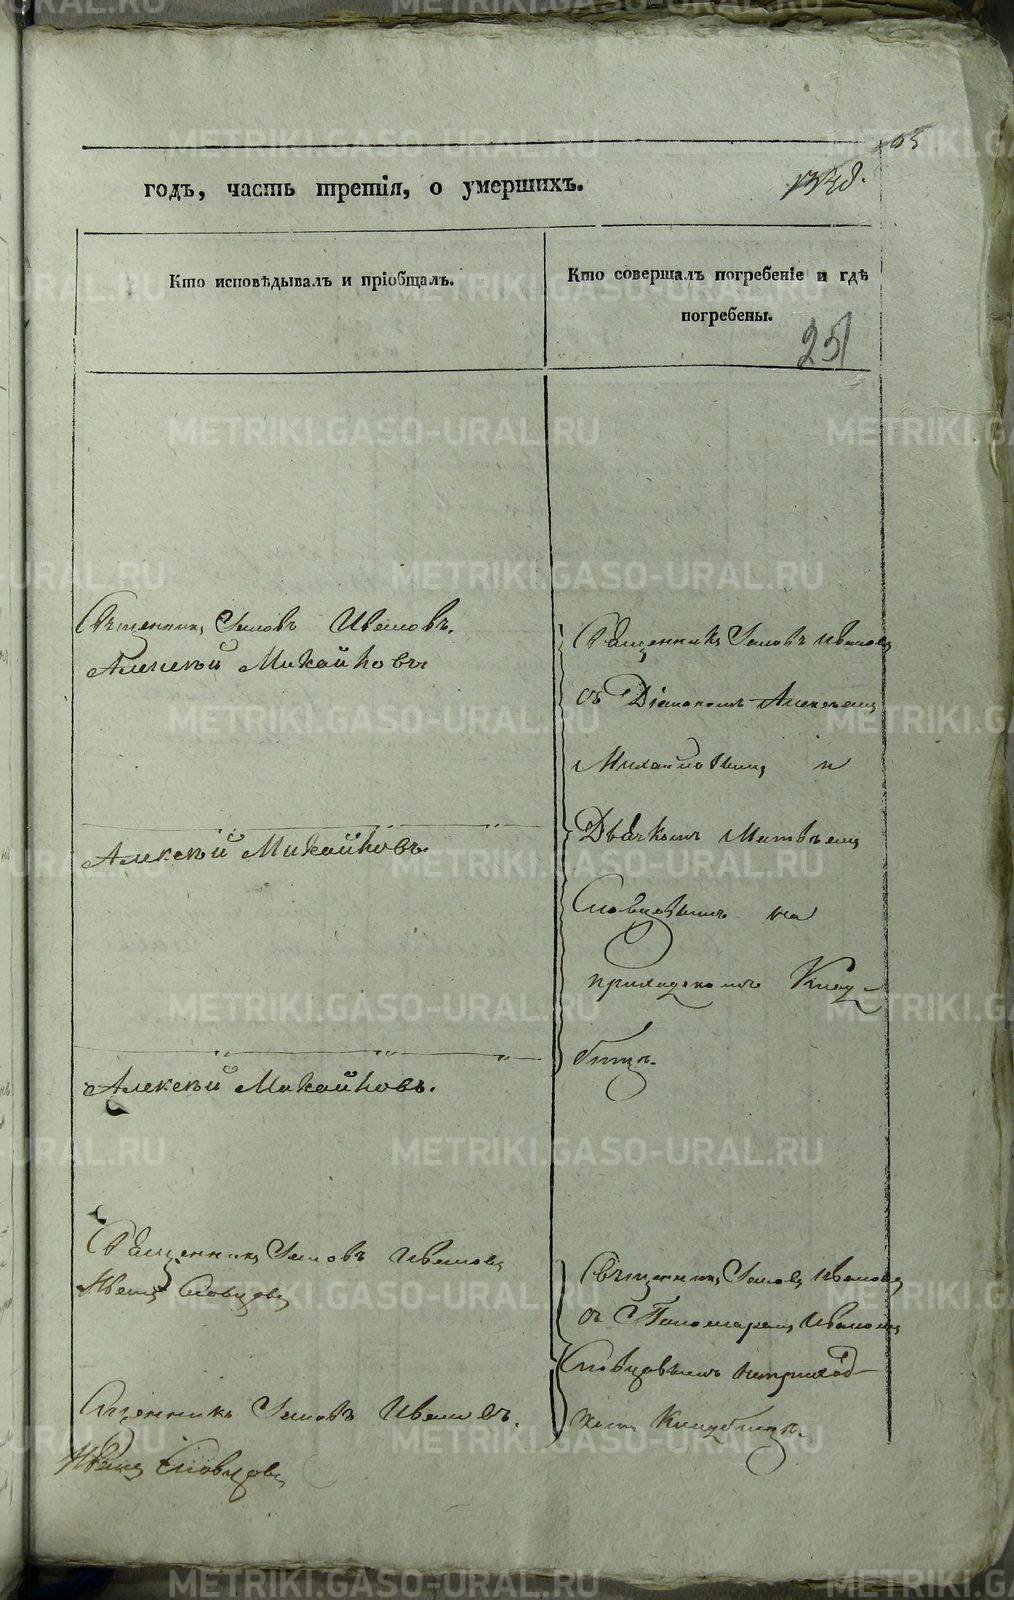 годъ, часть третія, о умершихъ.
Кто исповѣдывалъ и пріобщалъ.
Кто совершалъ погребеніе и гдѣ
погребены.
251
Священникъ Іаковъ Ивановъ.
Алексѣй Михайловъ
Священникъ Іаковъ Ивановъ
съ Діакономъ Алексѣемъ
Михайловымъ и
Дьячкомъ Матвѣемъ
Словцовымъ на
приходскомъ Клад
бищѣ.
Алексѣй Михайловъ.
Алексѣй Михайловъ.
Священникъ Іаковъ Ивановъ
Иванъ Словцовъ
Священникъ Іаковъ Ивановъ
съ Пономаремъ Иваномъ
Словцовымъ на приход
комъ Кладбищѣ.
Сщенникъ Іаковъ Ивановъ.
Иванъ Словцовъ
METRIKI.GASO-URAL.RU